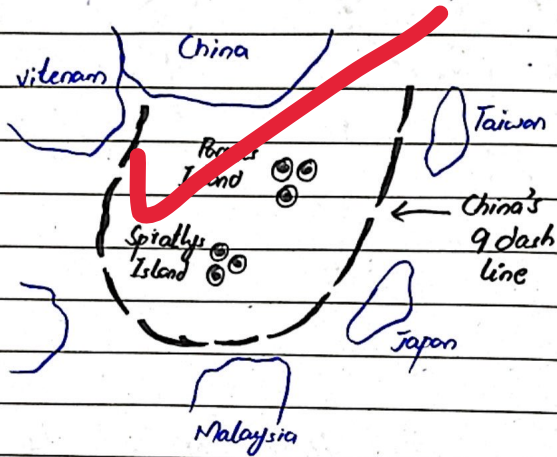 China
vitenam
Taiwan
Island
China's
9 dash
line
Spratlys
Island
Japan
Malaysia